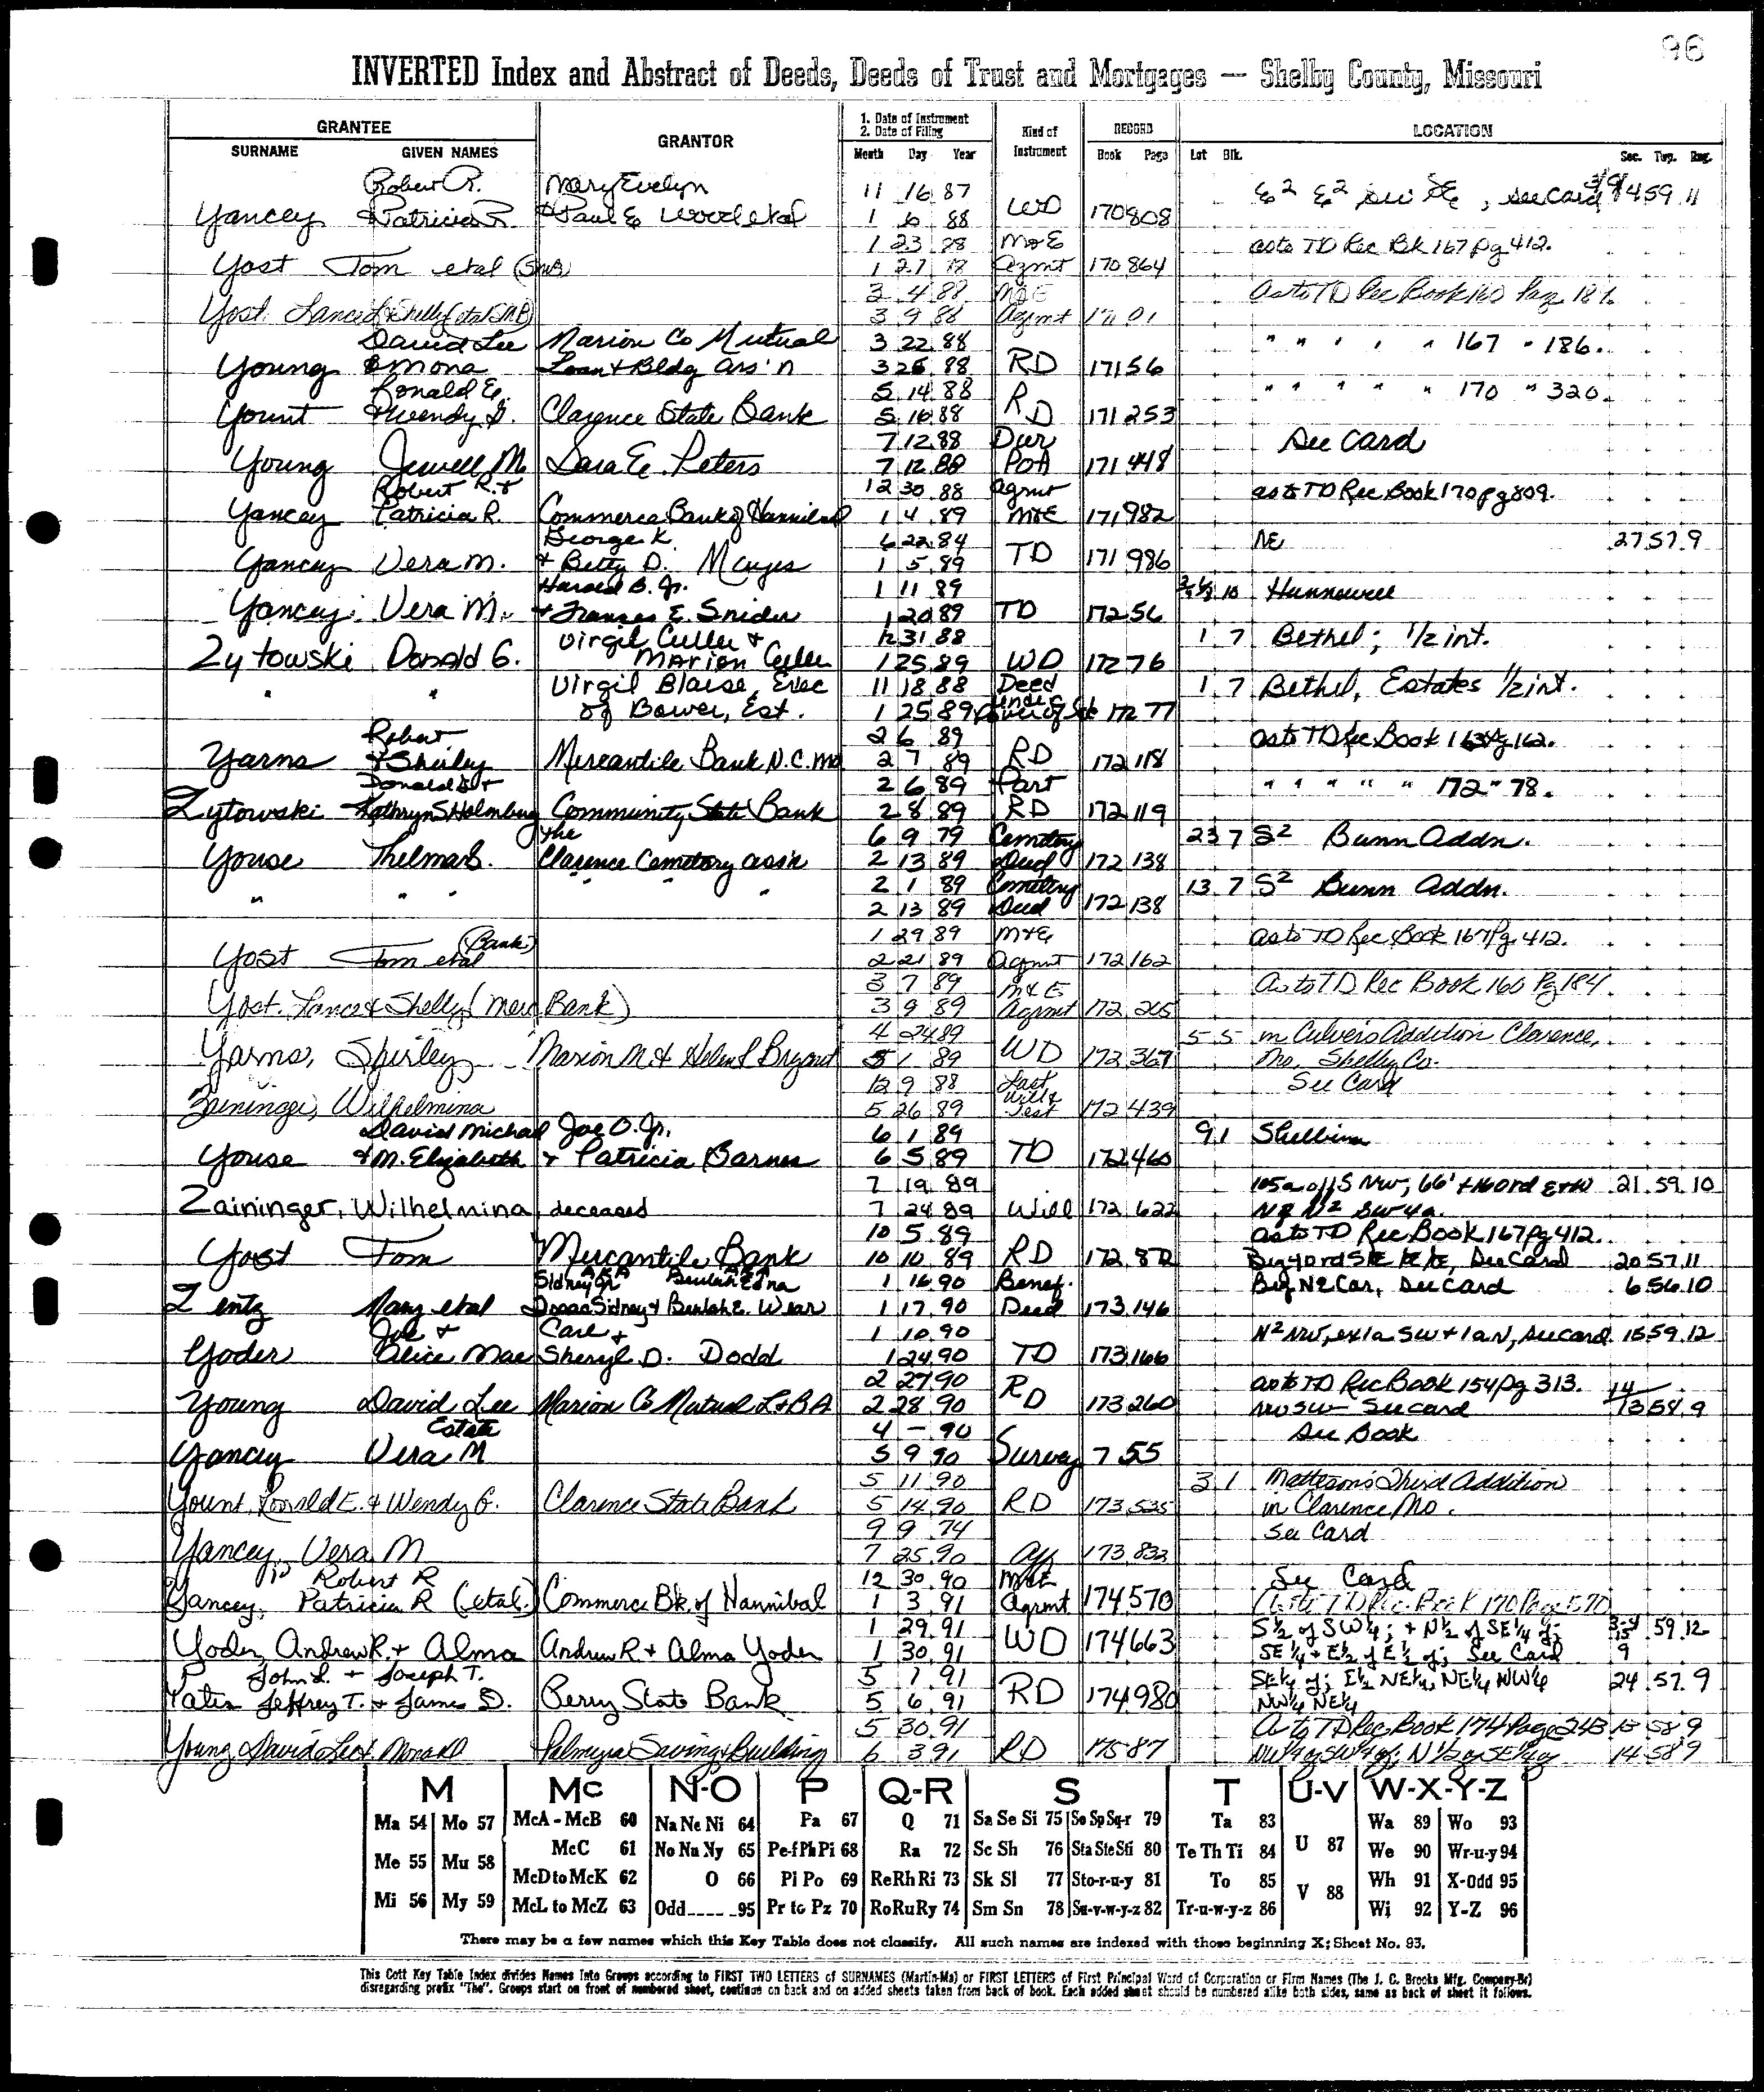 96
INVERTED Index and Abstract of Deeds, Deeds of Trust and Mortgages — Shelby County, Missouri
GRANTEE GRANTOR 1. Date of Instrument 2. Date of Filing Kind of Instrument RECORD LOCATION
SURNAME GIVEN NAMES Month Day Year Book Page Lot Blk. Sec. Twp. Rng.
Robert R. Mary Evelyn 11 16 87
Yancey & Patricia R. & Paul E Wood etal 1 6 88 WD 170 808 E2 E2 SW SE, See Card 59 11
1 23 88 M&E as to TD Rec Bk 167 pg 412.
Yost Tom etal 1 27 88 Agmt 170 864
3 4 88 M&E As to TD Rec Book 160 Pag 184
Yost Lance & Shelly (etal SNB) 3 9 88 Agmt 171 01
David Lee Marion Co Mutual 3 22 88 " " " " " 167 " 186.
Young & Mona Loan & Bldg Ass'n 3 25 88 RD 171 56
Ronald E. 5 14 88 " " " " " 170 " 320.
Yount & Wendy G. Clarence State Bank 5 16 88 RD 171 253
7 12 88 Dur See Card
Young Jewell M Sara E. Peters 7 12 88 PoA 171 448
Robert R. & 12 30 88 Agmt as to TD Rec Book 170 pg 809.
Yancey Patricia R. Commerce Bank of Hannibal 1 4 89 M&E 171 982
George K. 6 22 84 NE 27 57 9
Yancey Vera M. & Betty D. Mayes 1 5 89 TD 171 986
Harold B. Jr. 1 11 89 10 Hunnewell
Yancey Vera M. & Frances E. Snider 1 20 89 TD 172 56
Virgil Culler & 12 31 88 1 7 Bethel; 1/2 int.
Zytowski Donald G. Marion Culler 1 25 89 WD 172 76
" " Virgil Blaise, Exec 11 18 88 Deed 1 7 Bethel, Estates 1/2 int.
of Bower, Est. 1 25 89 under 172 77
Robert 2 6 89 as to TD Rec Book 163 Pg 162.
Yarns & Shirley Mercantile Bank N.C. Mo 2 7 89 RD 172 118
Donald G & 2 6 89 Part " " " " " 172 " 78.
Zytowski Kathryn S Holmberg Community State Bank 2 8 89 RD 172 119
the 6 9 79 Cemetery 23 7 S2 Bunn Addn.
Youse Thelma S. Clarence Cemetery ass'n 2 13 89 Deed 172 138
2 1 89 Cemetery 13 7 S2 Bunn Addn.
" " " " " " 2 13 89 Deed 172 138
(Bank) 1 29 89 M&E as to TD Rec Book 167 Pg 412.
Yost Tom etal 2 21 89 Agmt 172 162
3 7 89 M&E As to TD Rec Book 160 Pg 184
Yost Lance & Shelly (Merc Bank) 3 9 89 Agmt 172 265
4 24 89 5 5 in Culvers Addition Clarence,
Yarns, Shirley Marion M. & Helen L Bryant 5 1 89 WD 172 367 Mo. Shelby Co.
12 9 88 Last See Card
Zaininger, Wilhelmina 5 26 89 Will & Test 172 439
David Michael Joe O. Jr. 6 1 89 9 1 Shelbina
Youse & M. Elizabeth & Patricia Barnes 6 5 89 TD 172 460
7 19 89 105a off S NW, 66' & 160 rd E&W 21 59 10
Zaininger, Wilhelmina, deceased 7 24 89 Will 172 622 N2 SW 4a.
10 5 89 as to TD Rec Book 167 Pg 412.
Yost Tom Mercantile Bank 10 10 89 RD 172 872 Beg 40 rd S, See Card 20 57 11
Sidney Jr AKA Beulah Edna AKA 1 16 90 Benef. Beg NE Cor, See Card 6 56 10
Zentz Mary etal Sidney & Beulah E. Wear 1 17 90 Deed 173 146
Joe & Carl & 1 10 90 N2 NW, ex 1a SW & 1a N, See Card 15 59 12
Yoder Alice Mae Sheryl D. Dodd 1 24 90 TD 173 166
2 27 90 as to TD Rec Book 154 pg 313. 14
Young David Lee Marion Co Mutual L&BA 2 28 90 RD 173 260 NW SW - See Card 13 58 9
Estate 4 - 90 See Book
Yancey Vera M 5 9 90 Survey 7 55
5 11 90 3 1 Matteson's Third Addition
Yount, Ronald E. & Wendy G. Clarence State Bank 5 14 90 RD 173 535 in Clarence Mo.
9 9 74 See Card
Yancey, Vera M 7 25 90 Aff 173 832
Robert R 12 30 90 M&E See Card
Yancey, Patricia R (etal.) Commerce Bk. of Hannibal 1 3 91 Agrmt 174 570 (As to TD Rec. Book 170 Page 570
1 29 91 S½ of SW¼; & N½ of SE¼ of; 59 12
Yoder, Andrew R. & Alma Andrew R & Alma Yoder 1 30 91 WD 174 663 SE¼ & E½ of E½ of; See Card 9
John L. & Joseph T. 5 1 91 SE¼ of; E½ NE¼, NE¼ NW¼ 24 57 9
Yates Jeffrey T. & James D. Perry State Bank 5 6 91 RD 174 980 NW¼ NE¼
5 30 91 As to TD Rec Book 174 Page 243 13 58 9
Young David Lee & Mona D Palmyra Saving & Building 6 3 91 RD 175 87 NW¼ of SW¼ of; N½ of SE¼ of 14 58 9
M Mc N-O P Q-R S T U-V W-X-Y-Z
Ma 54 Mo 57 McA - McB 60 Na Ne Ni 64 Pa 67 Q 71 Sa Se Si 75 So Sp Sq-r 79 Ta 83 U 87 Wa 89 Wo 93
Me 55 Mu 58 McC 61 No Nu Ny 65 Pe-f Ph Pi 68 Ra 72 Sc Sh 76 Sta Ste Sti 80 Te Th Ti 84 We 90 Wr-u-y 94
McD to McK 62 O 66 Pi Po 69 Re Rh Ri 73 Sk Sl 77 Sto-r-u-y 81 To 85 V 88 Wh 91 X-Odd 95
Mi 56 My 59 McL to McZ 63 Odd 95 Pr to Pz 70 Ro Ru Ry 74 Sm Sn 78 Su-v-w-y-z 82 Tr-u-w-y-z 86 Wi 92 Y-Z 96
There may be a few names which this Key Table does not classify. All such names are indexed with those beginning X; Sheet No. 93.
This Cott Key Table Index divides Names into Groups according to FIRST TWO LETTERS of SURNAMES (Martin-Ma) or FIRST LETTERS of First Principal Word of Corporation or Firm Names (The J. C. Brooks Mfg. Company-Br)
disregarding prefix "The". Groups start on front of numbered sheet, continue on back and on added sheets taken from back of book. Each added sheet should be numbered alike both sides, same as back of sheet it follows.